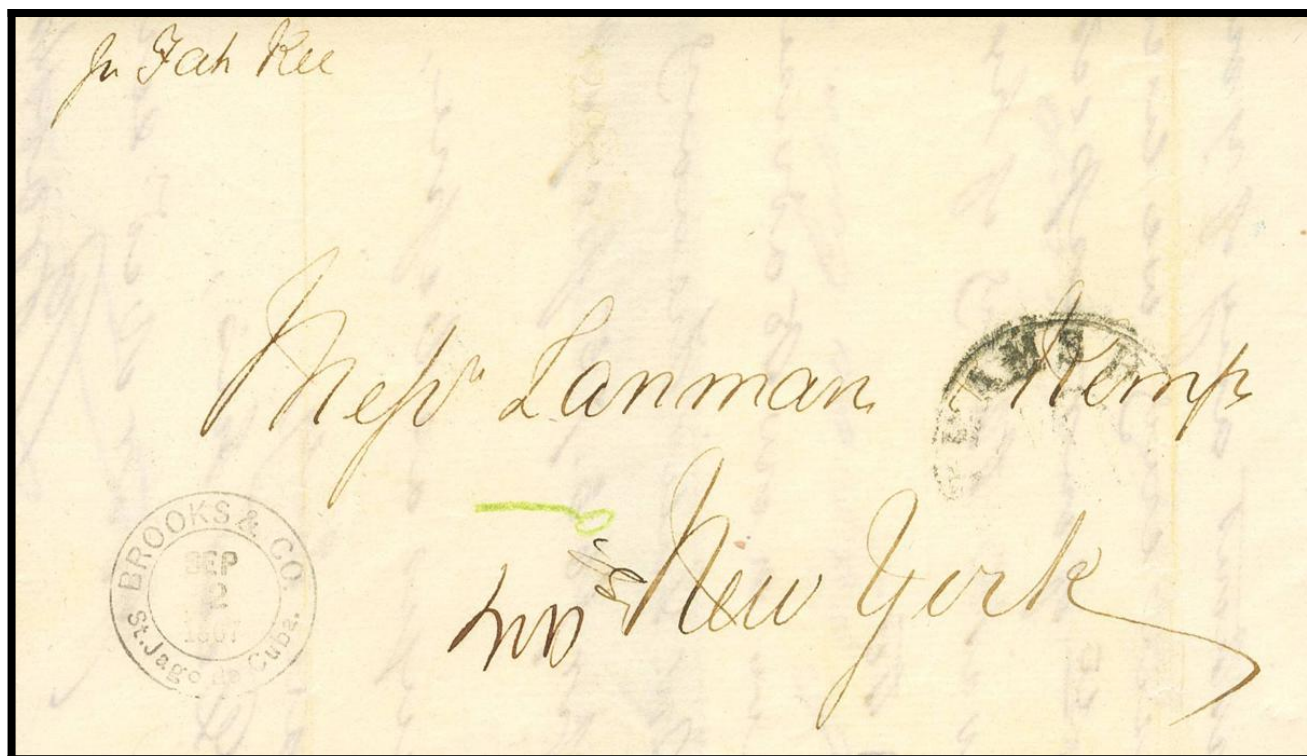 pr Fah Kee
Messrs Lanman Kemp
New York
BROOKS & CO.
SEP
2
1867
St. Jago de Cuba.
STEAMSHIP